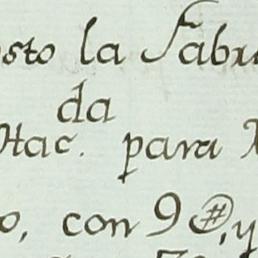 sto la Fabri
da
Hac. para
o, con 9 #, y